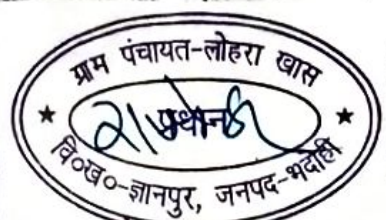 ग्राम पंचायत-लोहरा खास
प्रधान
वि०ख०-ज्ञानपुर, जनपद-भदोही